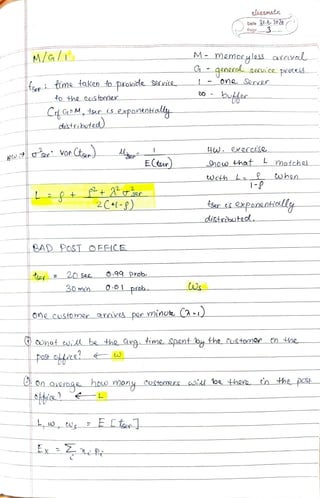 classmate
Date
Page 3
M/G/1
M - memoryless arrival
G - general service process
1 - one server
∞ - buffer
tser : time taken to provide service
to the customer
(if G=M, tser is exponentially
distributed)
σ²ser = var(tser) μser = 1/E(tser)
HW. exercise
Show that L matches
with L = ρ/(1-ρ) when
tser is exponentially
distributed.
L = ρ + (ρ² + λ²σ²ser)/(2(1-ρ))
BAD POST OFFICE
tser = 20 sec 0.99 prob.
30 min 0.01 prob.
Ws
One customer arrives per minute (λ=1)
① What will be the avg. time spent by the customer in the
post office? ← W
② On average how many customers will be there in the post
office? ← L
L, W, Ws = E[tser]
Ex = Σ xi pi
i